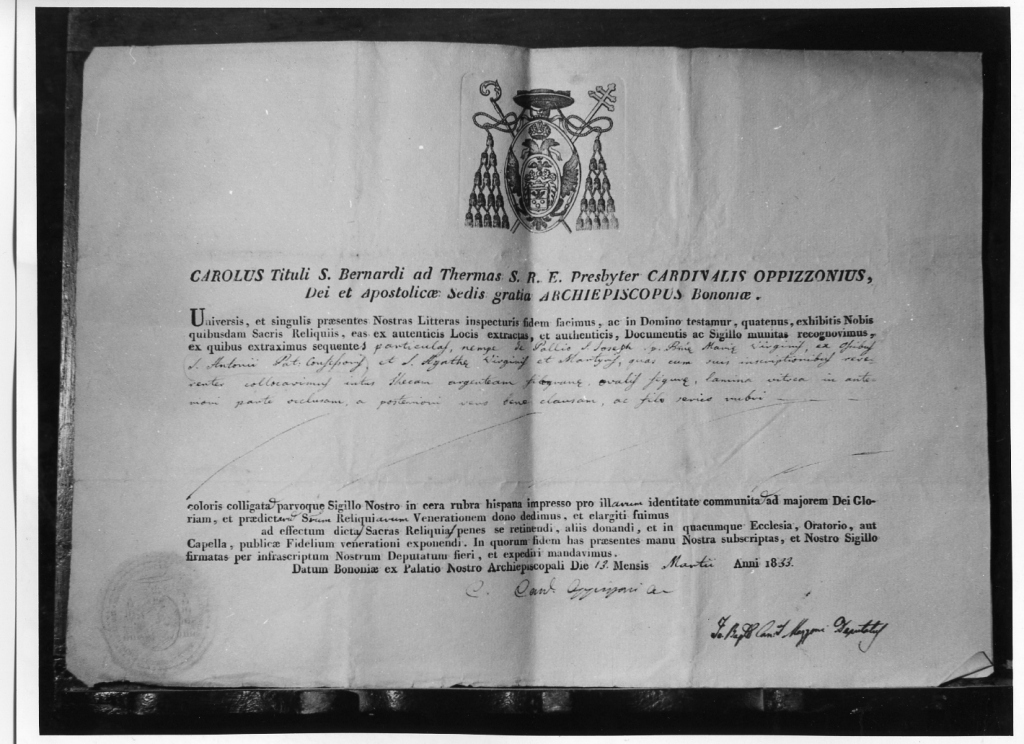 CAROLUS Tituli S. Bernardi ad Thermas S. R. E. Presbyter CARDINALIS OPPIZZONIUS,
Dei et Apostolicæ Sedis gratia ARCHIEPISCOPUS Bononiæ.
Universis, et singulis præsentes Nostras Litteras inspecturis fidem facimus, ac in Domino testamur, quatenus, exhibitis Nobis
quibusdam Sacris Reliquiis, eas ex autenticis Locis extractas, et authenticis, Documentis ac Sigillo munitas recognovimus,
ex quibus extraximus sequentes particulas, nempe de Pallio S. Joseph Mariæ Virginis, ex Ossibus
S. Antonii Confessoris, et S. Agathæ Virginis et Martyris, quas cum suis inscriptionibus reve-
renter collocavimus intus thecam argenteam ovalis figuræ, lamina vitrea in ante-
riori parte occlusam, a posteriori vero bene clausam, ac filo serico rubri
coloris colligata parvoque Sigillo Nostro in cera rubra hispana impresso pro illarum identitate communita ad majorem Dei Glo-
riam, et prædictarum Reliquiarum Venerationem dono dedimus, et elargiti fuimus
ad effectum dictas Sacras Reliquias penes se retinendi, aliis donandi, et in quacumque Ecclesia, Oratorio, aut
Capella, publicæ Fidelium venerationi exponendi. In quorum fidem has præsentes manu Nostra subscriptas, et Nostro Sigillo
firmatas per infrascriptum Nostrum Deputatum fieri, et expediri mandavimus.
Datum Bononiæ ex Palatio Nostro Archiepiscopali Die 13. Mensis Martii Anni 1833.
C. Card. Oppizzoni
Mazzoni Deputatus